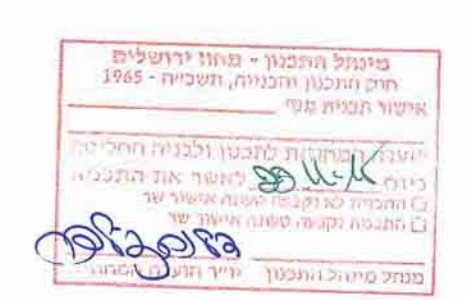 מינהל התכנון - מחוז ירושלים
חוק התכנון והבנייה, תשכ״ה - 1965
אישור תכנית מס׳
הועדה המחוזית לתכנון ולבניה החליטה
ביום לאשר את התכנית
התכנית לא נקבעה טעונה אישור שר
התכנית נקבעה טעונה אישור שר
מנהל מינהל התכנון יו״ר הועדה המחוזית